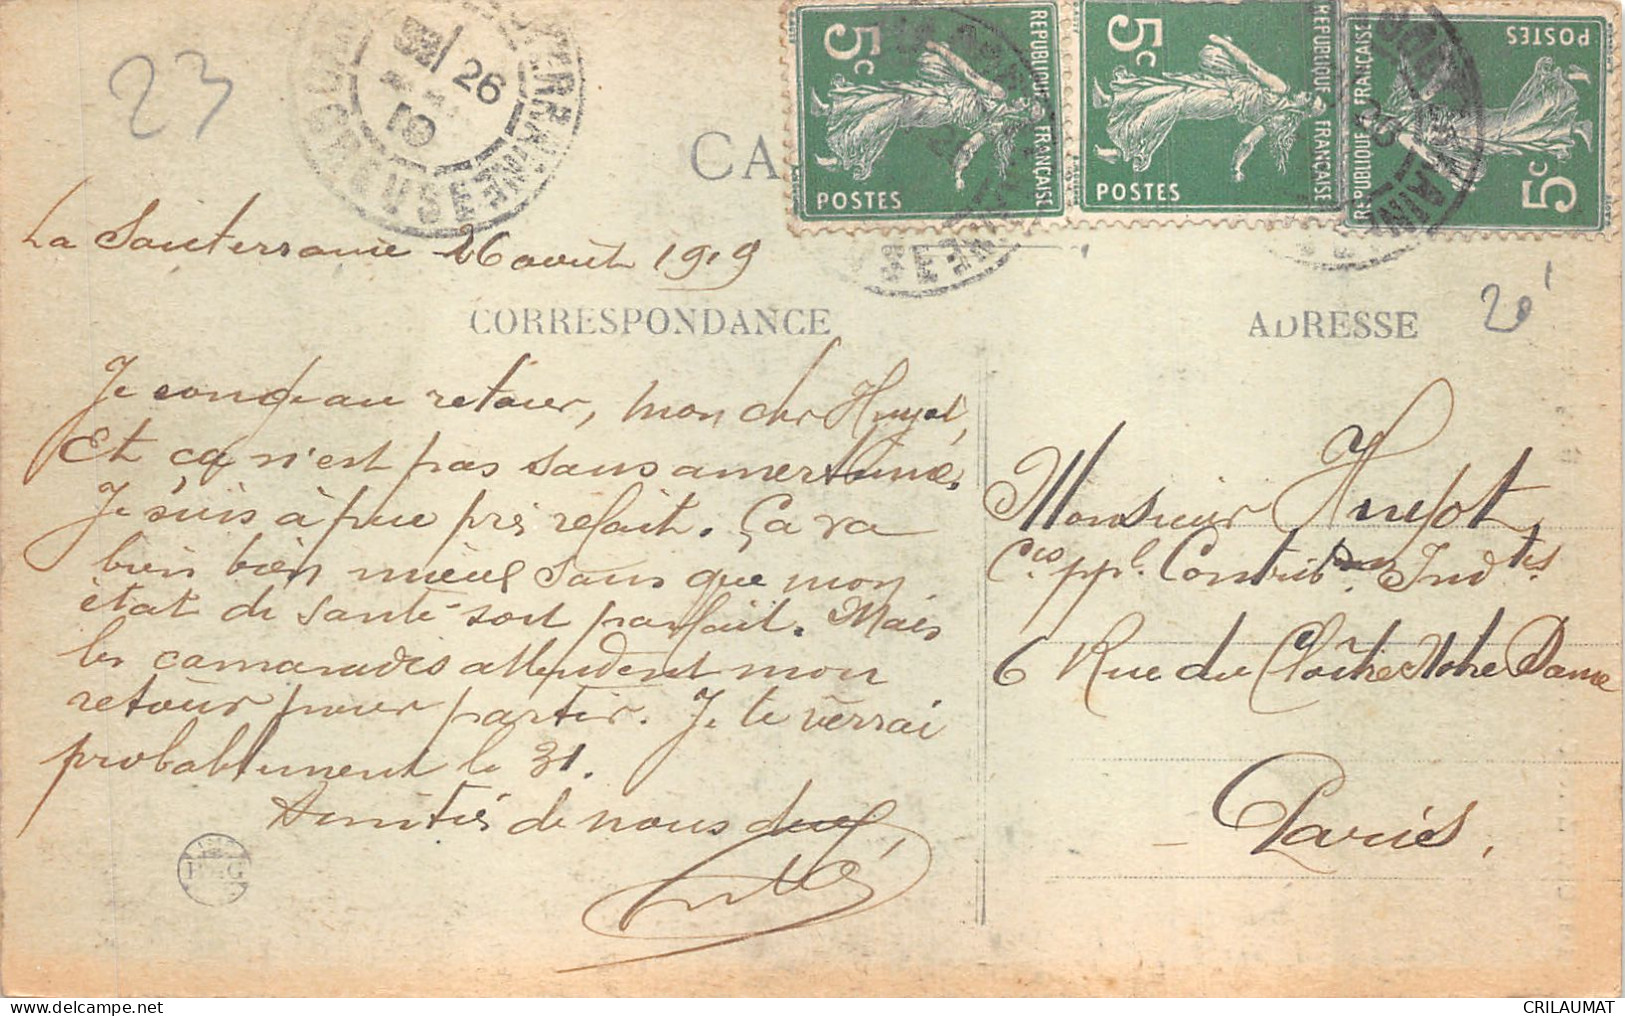 23
LA SOUTERRAINE
26
19
CREUSE
CA
5c
REPUBLIQUE FRANÇAISE
POSTES
5c
REPUBLIQUE FRANÇAISE
POSTES
5c
REPUBLIQUE FRANÇAISE
POSTES
La Souterraine 26 août 1919
CORRESPONDANCE
ADRESSE
20
Je songe au retour, mon cher Huyot,
Et ça n'est pas sans amertume.
Je suis à peu près refait. Ça va
bien bien mieux sans que mon
état de santé soit parfait. Mais
les camarades attendent mon
retour pour partir. Je te verrai
probablement le 31.
Amitiés de nous deux,
Monsieur Huyot
Cis ppl. Contrib Indtes
6 Rue du Cloître Notre Dame
Paris.
CRILAUMAT